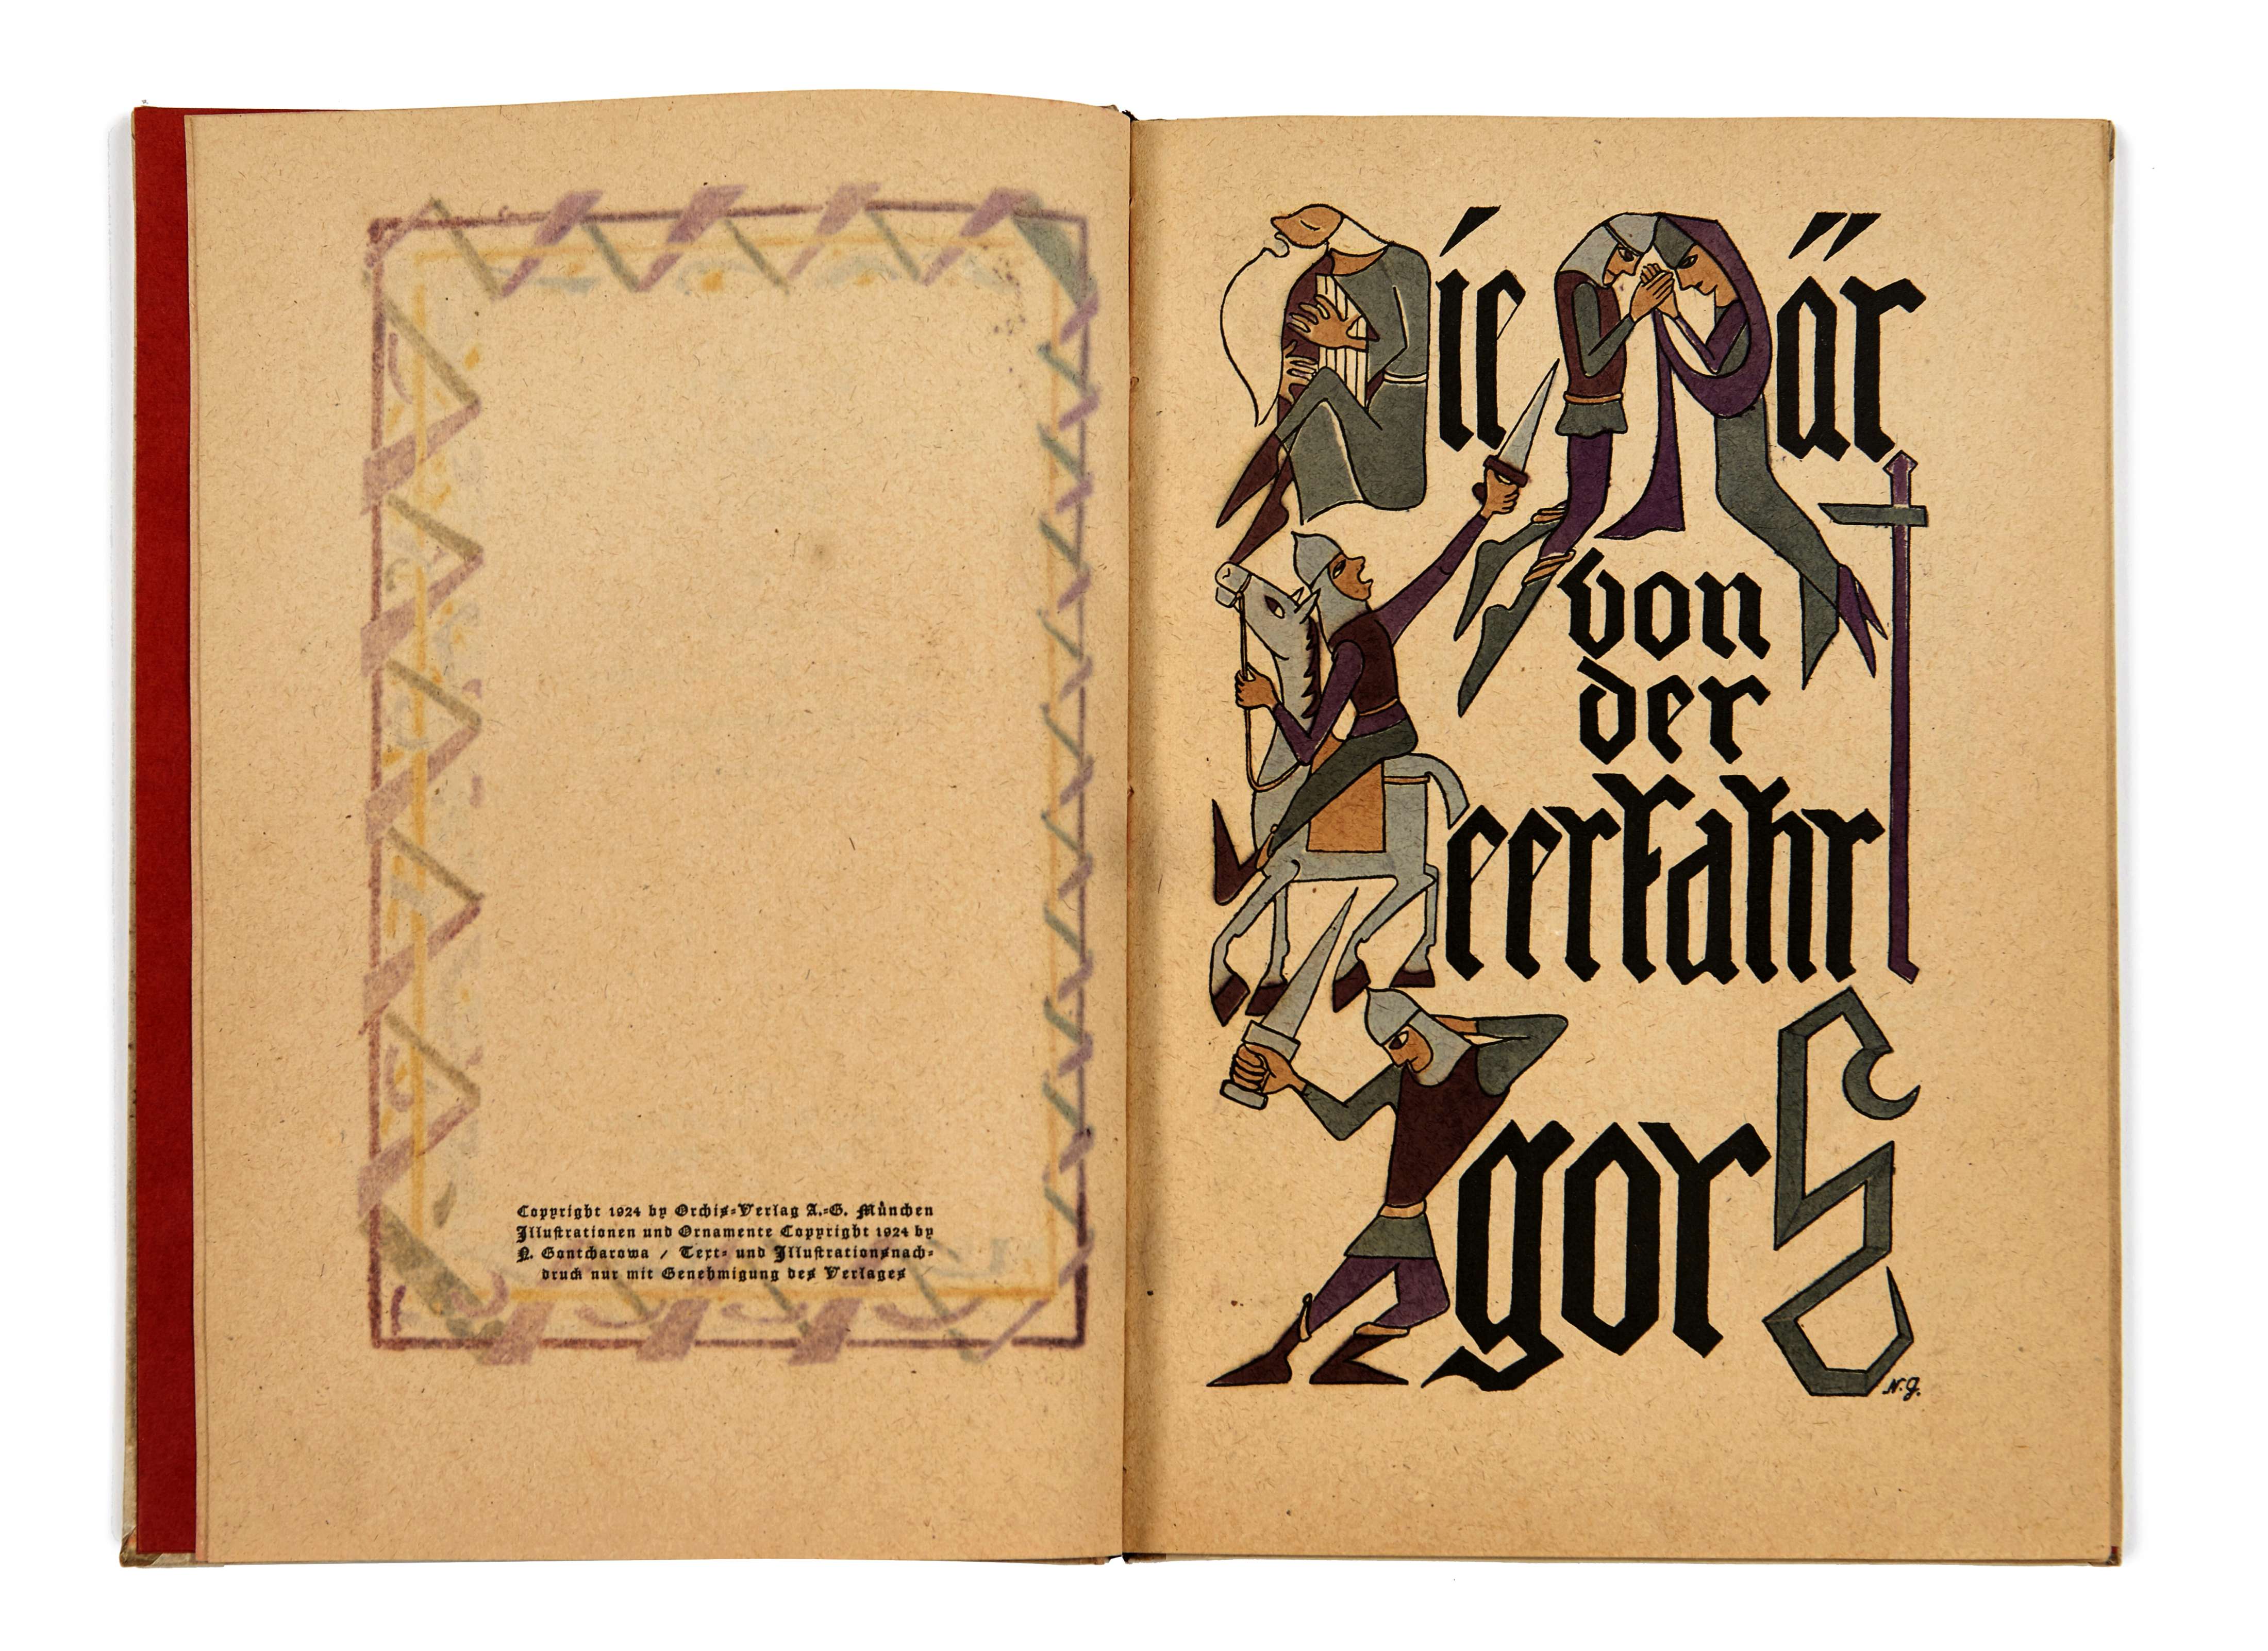 Copyright 1924 by Orchis-Verlag A.-G. München
Illustrationen und Ornamente Copyright 1924 by
N. Gontcharowa / Text- und Illustrationsnach-
druck nur mit Genehmigung des Verlages
Die Mär
von
der
Heerfahrt
Igors
N.G.